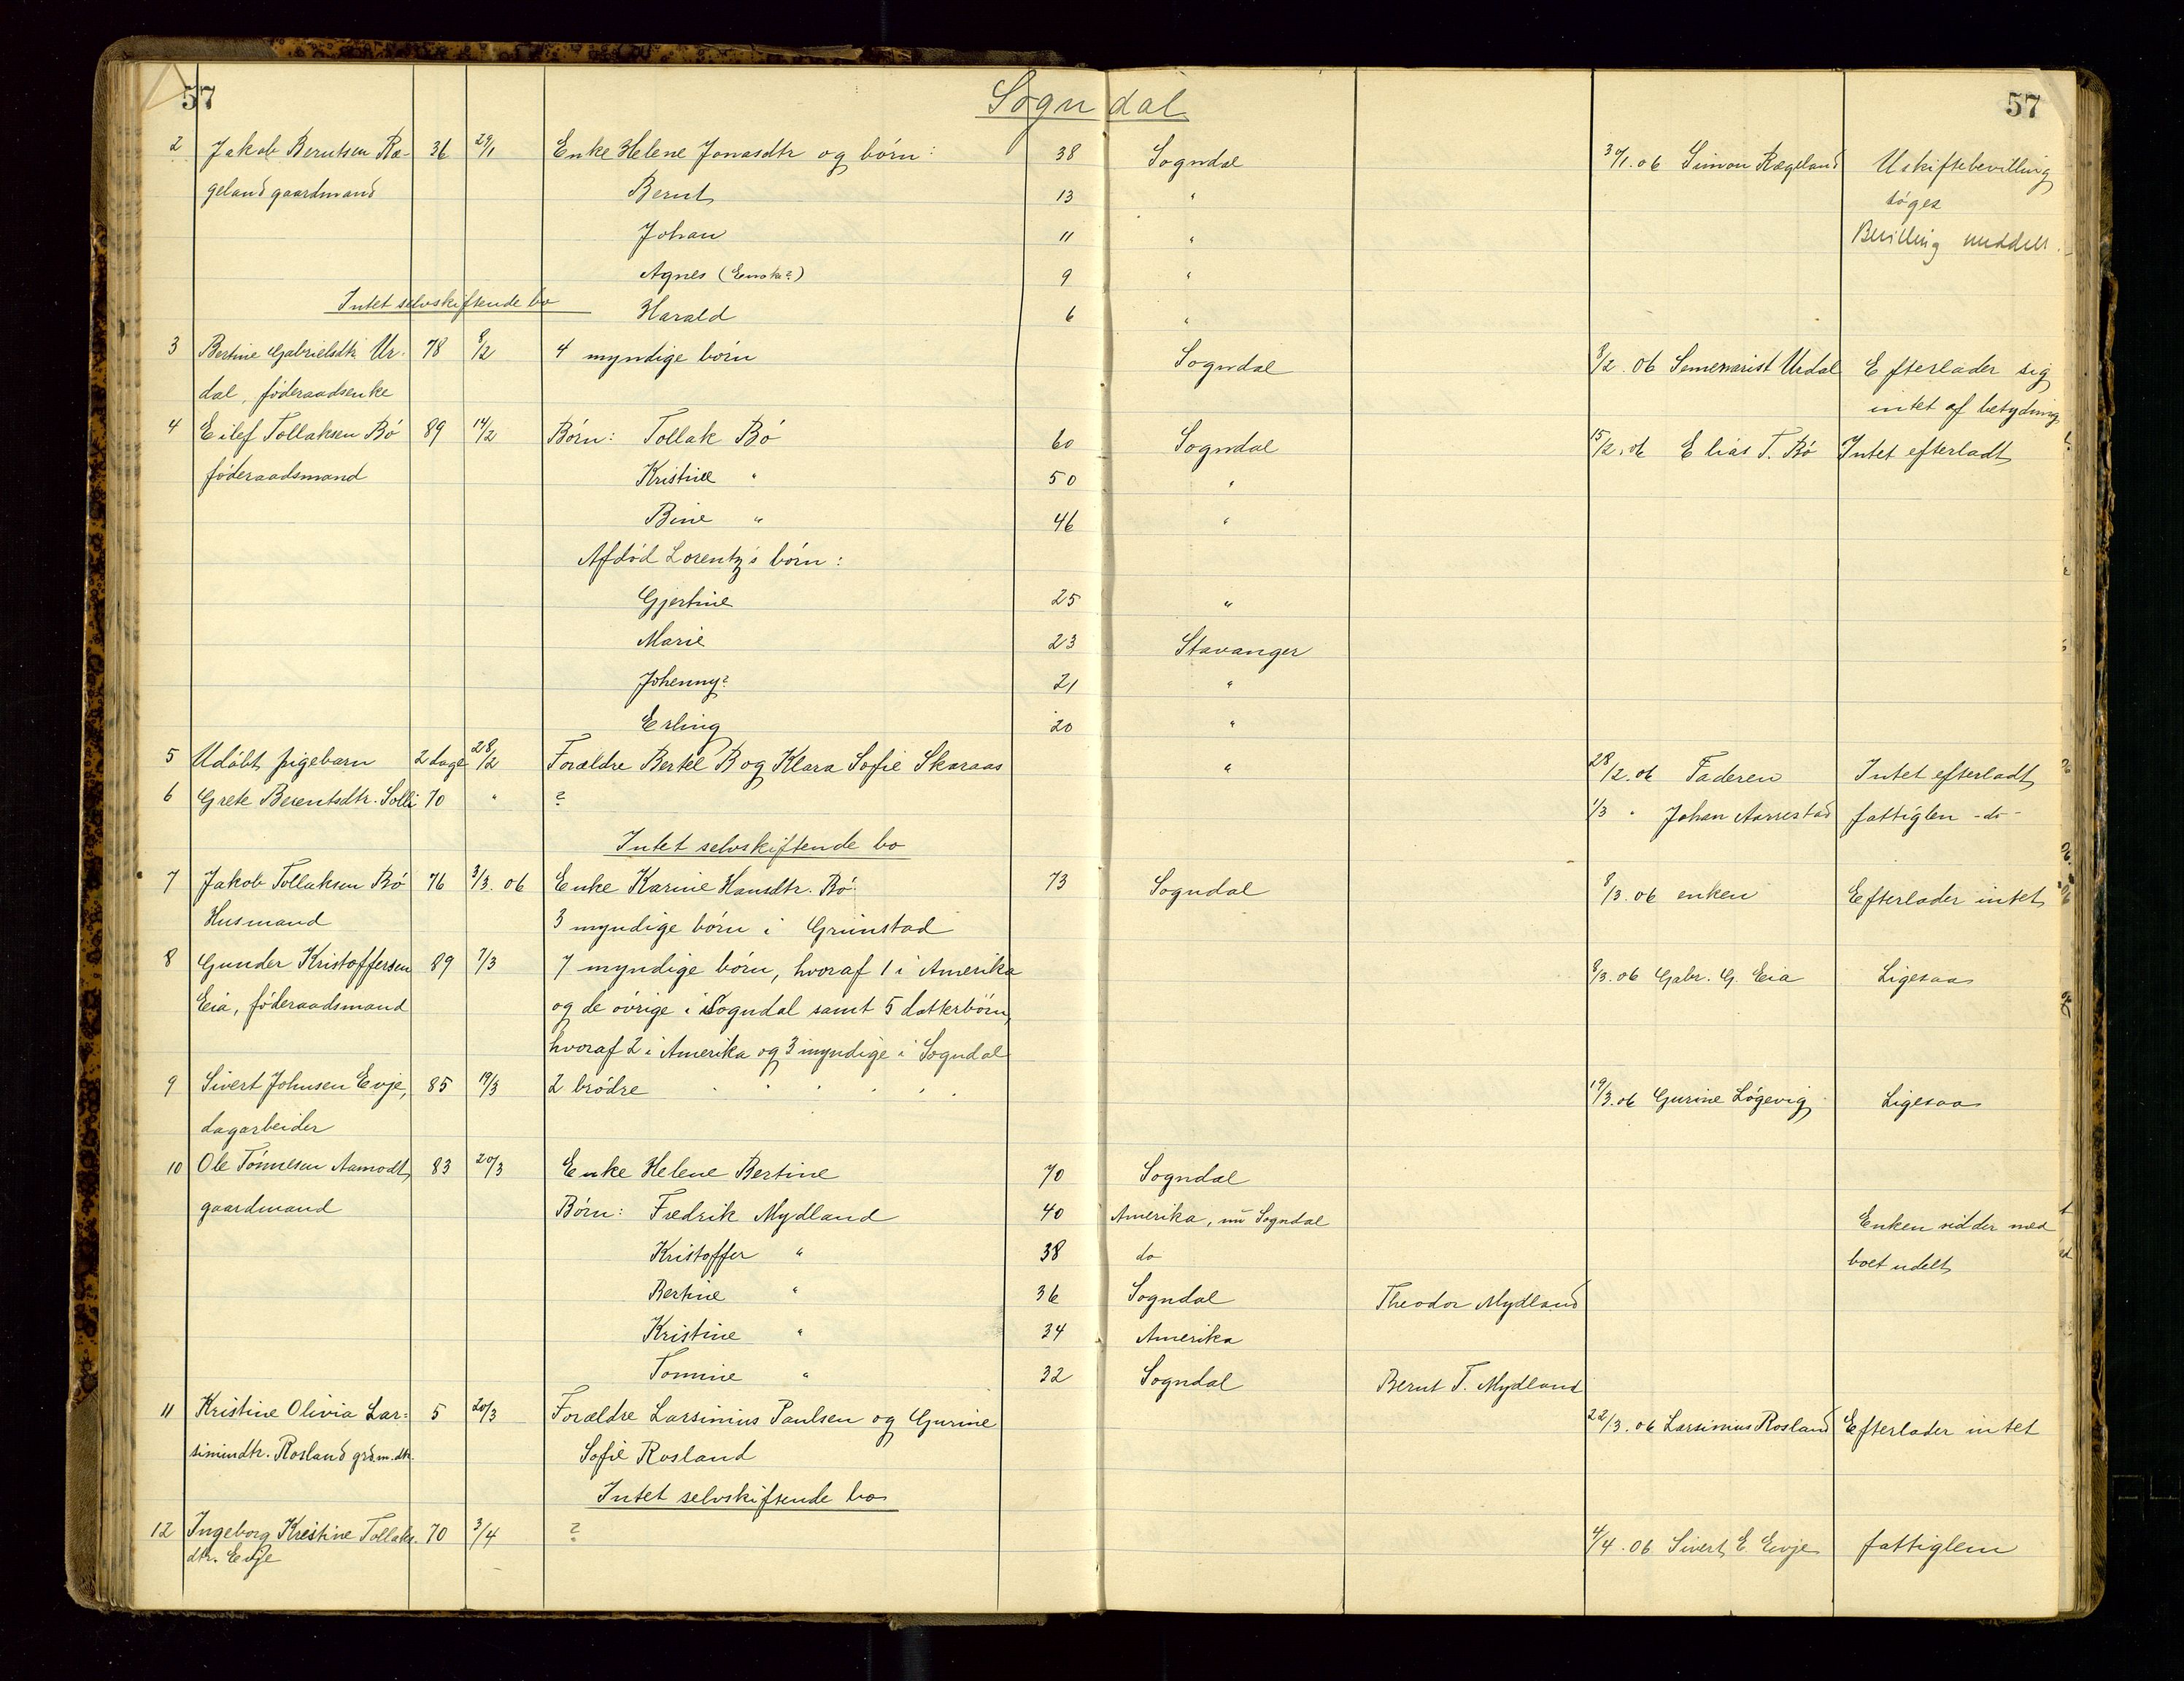 57 Sogndal 57
2 Jakob Berntsen Ræ- 36 29/1 Enke Helene Jonasdtr og börn: 38 Sogndal 30/1.06 Simon Rægeland Uskiftebevilling
geland gaardmand Bernt 13 " söges
Johan 11 " Bevilling meddelt.
Agnes 9 "
Intet selvskiftende bo Harald 6 "
3 Bertine Gabrielsdtr. Ur- 78 8/2 4 myndige börn Sogndal 8/2.06 Urdal Efterlader sig
dal, föderaadsenke intet af betydning
4 Eilef Tollaksen Bö 89 14/2 Börn: Tollak Bö 60 Sogndal 15/2.06 Elias T. Bö Intet efterladt
föderaadsmand Kristine " 50 "
Bine " 46 "
Afdöd Lorentz's börn:
Gjertine 25 "
Marie 23 Stavanger
Johenny? 21 "
Erling 20 "
5 Udöbt pigebarn 2 dage 28/2 Forældre Bertel B og Klara Sofie Skaraas " 28/2.06 Faderen Intet efterladt
6 Grete Berentsdtr. Solli 70 " ? 1/3 " Johan Aarrestad fattiglem -do-
Intet selvskiftende bo
7 Jakob Tollaksen Bö 76 3/3.06 Enke Karine Hansdtr. Bö 73 Sogndal 8/3.06 enken Efterlader intet
Husmand 3 myndige börn i Grimstad
8 Gunder Kristoffersen 89 7/3 7 myndige börn, hvoraf 1 i Amerika 8/3.06 Gabr. G. Eia Ligesaa
Eia, föderaadsmand og de övrige i Sogndal samt 5 datterbörn,
hvoraf 2 i Amerika og 3 myndige i Sogndal
9 Sivert Johnsen Evje, 85 19/3 2 brödre 19/3.06 Gurine Lögevig Ligesaa
dagarbeider
10 Ole Tönnesen Aamodt 83 20/3 Enke Helene Bertine 70 Sogndal
gaardmand Börn: Fredrik Mydland 40 Amerika, nu Sogndal Enken sidder med
Kristoffer " 38 do boet udelt
Bertine " 36 Sogndal Theodor Mydland
Kristine " 34 Amerika
Tomine " 32 Sogndal Bernt T. Mydland
11 Kristine Olivia Lar- 5 20/3 Forældre Larsinius Paulsen og Gurine 22/3.06 Larsinius Rosland Efterlader intet
siniusdtr. Rosland grdm.dtr. Sofie Rosland
Intet selvskiftende bo
12 Ingeborg Kristine Tollaks. 70 3/4 ? 4/4.06 Sivert E. Evje fattiglem
dtr. Evje